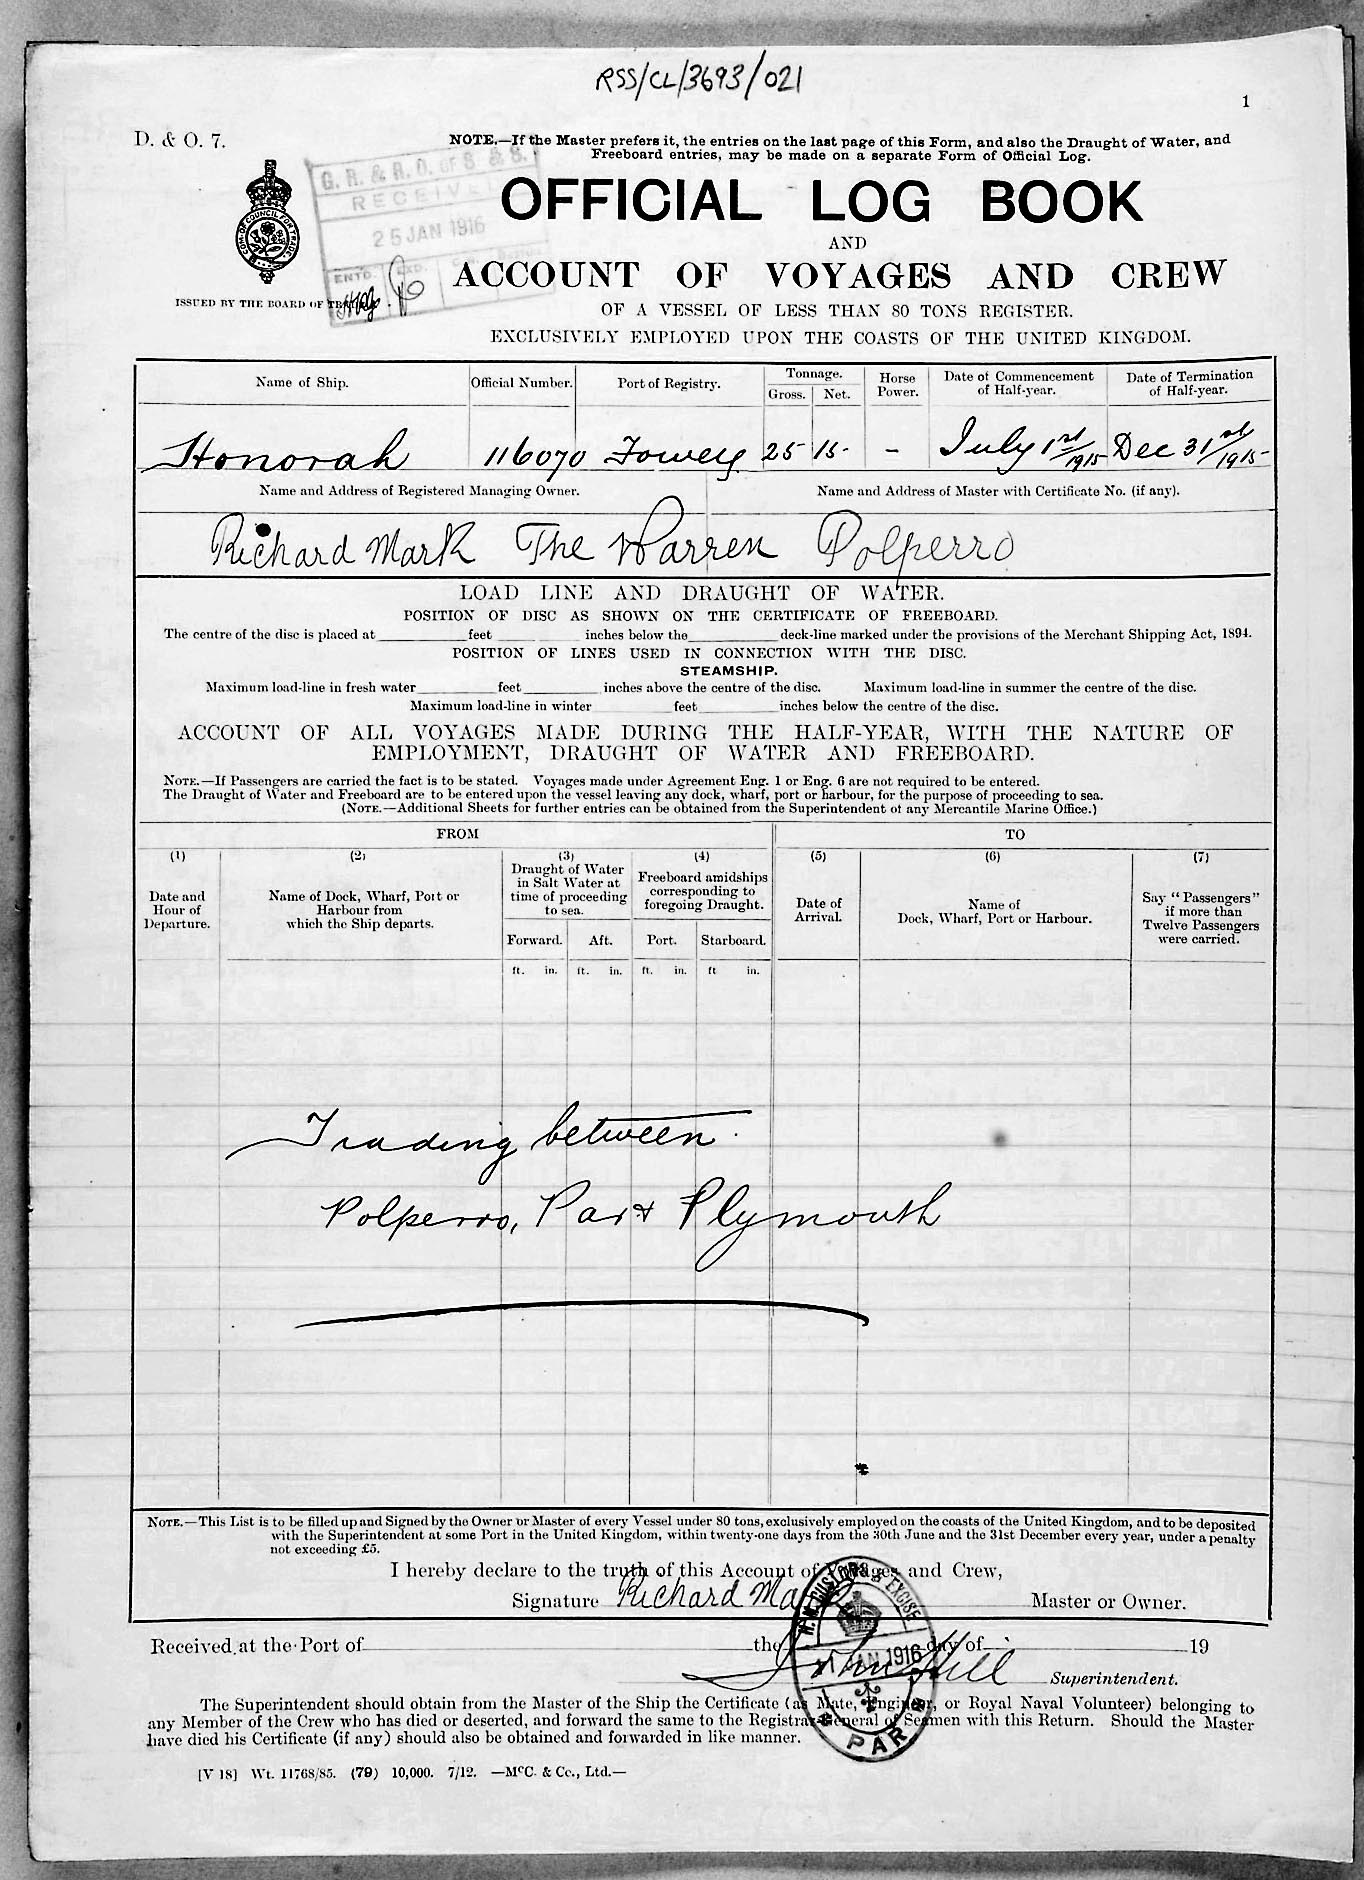 RSS/CL/3693/021
1
D. & O. 7.
NOTE.—If the Master prefers it, the entries on the last page of this Form, and also the Draught of Water, and
Freeboard entries, may be made on a separate Form of Official Log.
G. R. & R. O. OF S & S.
RECEIVED
25 JAN 1916
ENTD. EXD.
COM. OF COUNCIL FOR TRADE
ISSUED BY THE BOARD OF TRADE.
OFFICIAL LOG BOOK
AND
ACCOUNT OF VOYAGES AND CREW
OF A VESSEL OF LESS THAN 80 TONS REGISTER.
EXCLUSIVELY EMPLOYED UPON THE COASTS OF THE UNITED KINGDOM.
Name of Ship. Official Number. Port of Registry. Tonnage. Gross. Net. Horse Power. Date of Commencement of Half-year. Date of Termination of Half-year.
Honorah 116070 Fowey 25 15 - July 1st 1915 Dec 31st 1915
Name and Address of Registered Managing Owner. Name and Address of Master with Certificate No. (if any).
Richard Mark The Warren Polperro
LOAD LINE AND DRAUGHT OF WATER.
POSITION OF DISC AS SHOWN ON THE CERTIFICATE OF FREEBOARD.
The centre of the disc is placed at feet inches below the deck-line marked under the provisions of the Merchant Shipping Act, 1894.
POSITION OF LINES USED IN CONNECTION WITH THE DISC.
STEAMSHIP.
Maximum load-line in fresh water feet inches above the centre of the disc. Maximum load-line in summer the centre of the disc.
Maximum load-line in winter feet inches below the centre of the disc.
ACCOUNT OF ALL VOYAGES MADE DURING THE HALF-YEAR, WITH THE NATURE OF
EMPLOYMENT, DRAUGHT OF WATER AND FREEBOARD.
NOTE.—If Passengers are carried the fact is to be stated. Voyages made under Agreement Eng. 1 or Eng. 6 are not required to be entered.
The Draught of Water and Freeboard are to be entered upon the vessel leaving any dock, wharf, port or harbour, for the purpose of proceeding to sea.
(NOTE.—Additional Sheets for further entries can be obtained from the Superintendent of any Mercantile Marine Office.)
FROM TO
(1) (2) (3) (4) (5) (6) (7)
Date and Hour of Departure.
Name of Dock, Wharf, Port or Harbour from which the Ship departs.
Draught of Water in Salt Water at time of proceeding to sea.
Freeboard amidships corresponding to foregoing Draught.
Date of Arrival.
Name of Dock, Wharf, Port or Harbour.
Say "Passengers" if more than Twelve Passengers were carried.
Forward. Aft. Port. Starboard.
ft. in. ft. in. ft. in. ft in.
Trading between
Polperro, Par & Plymouth
NOTE.—This List is to be filled up and Signed by the Owner or Master of every Vessel under 80 tons, exclusively employed on the coasts of the United Kingdom, and to be deposited
with the Superintendent at some Port in the United Kingdom, within twenty-one days from the 30th June and the 31st December every year, under a penalty
not exceeding £5.
I hereby declare to the truth of this Account of Voyages and Crew,
Signature Richard Mark Master or Owner.
H.M. CUSTOMS & EXCISE
JAN 1916
PAR
Received at the Port of the day of 19
John Hill Superintendent.
The Superintendent should obtain from the Master of the Ship the Certificate (as Mate, Engineer, or Royal Naval Volunteer) belonging to
any Member of the Crew who has died or deserted, and forward the same to the Registrar-General of Seamen with this Return. Should the Master
have died his Certificate (if any) should also be obtained and forwarded in like manner.
[V 18] Wt. 11768/85. (79) 10,000. 7/12. —McC. & Co., Ltd.—